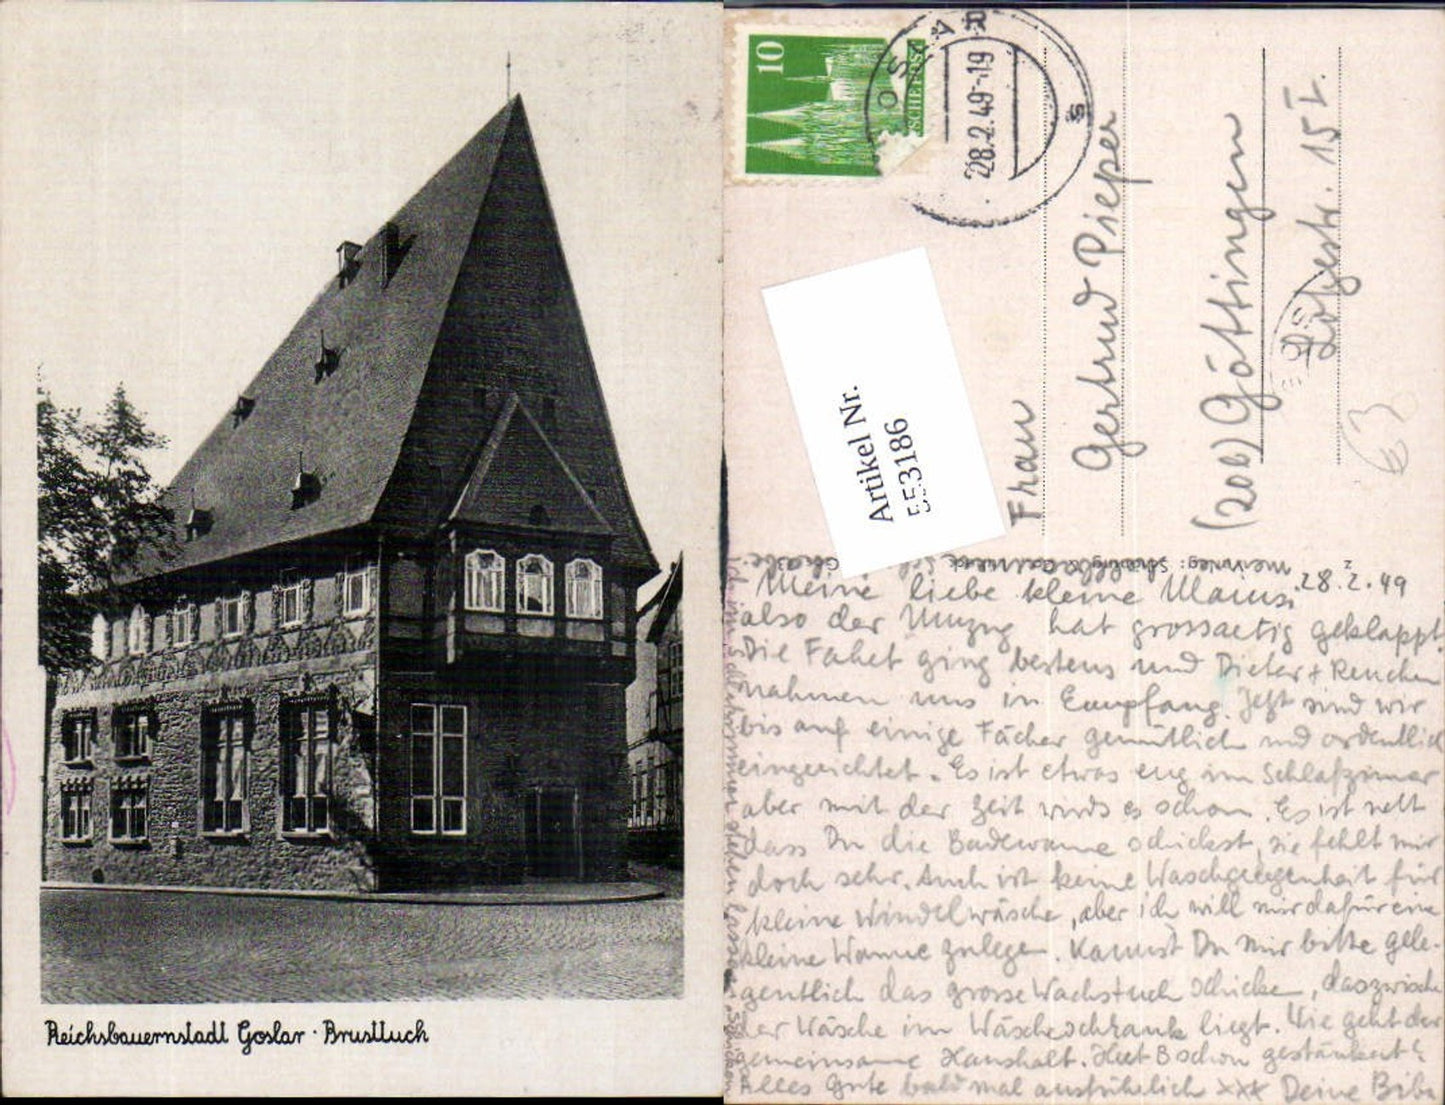 Reichsbauernstadt Goslar · Brusttuch
10
DEUTSCHE POST
GOSLAR
28.2.49-19
s
Artikel Nr.
553186
Frau
Gertrud Pieper
(20b) Göttingen
Lotzestr. 15 I.
28.2.49
Meine liebe kleine Mamsi
also der Umzug hat grossartig geklappt.
Die Fahrt ging bestens und Dieter + Renchen
nahmen uns in Empfang. Jetzt sind wir
bis auf einige Fächer gemütlich und ordentlich
eingerichtet. Es ist etwas eng im Schlafzimmer
aber mit der Zeit wirds es schon. Es ist nett
dass Du die Badewanne schickst, sie fehlt mir
doch sehr. Auch ist keine Waschgelegenheit für
kleine Windelwäsche, aber ich will mir dafür eine
kleine Wanne zulegen. Kannst Du mir bitte gele-
gentlich das grosse Wachstuch schicken, das zwischen
der Wäsche im Wäscheschrank liegt. Wie geht der
gemeinsame Haushalt. Hat B schon gestänkert?
Alles Gute bald mal ausführlich xxx Deine Biba